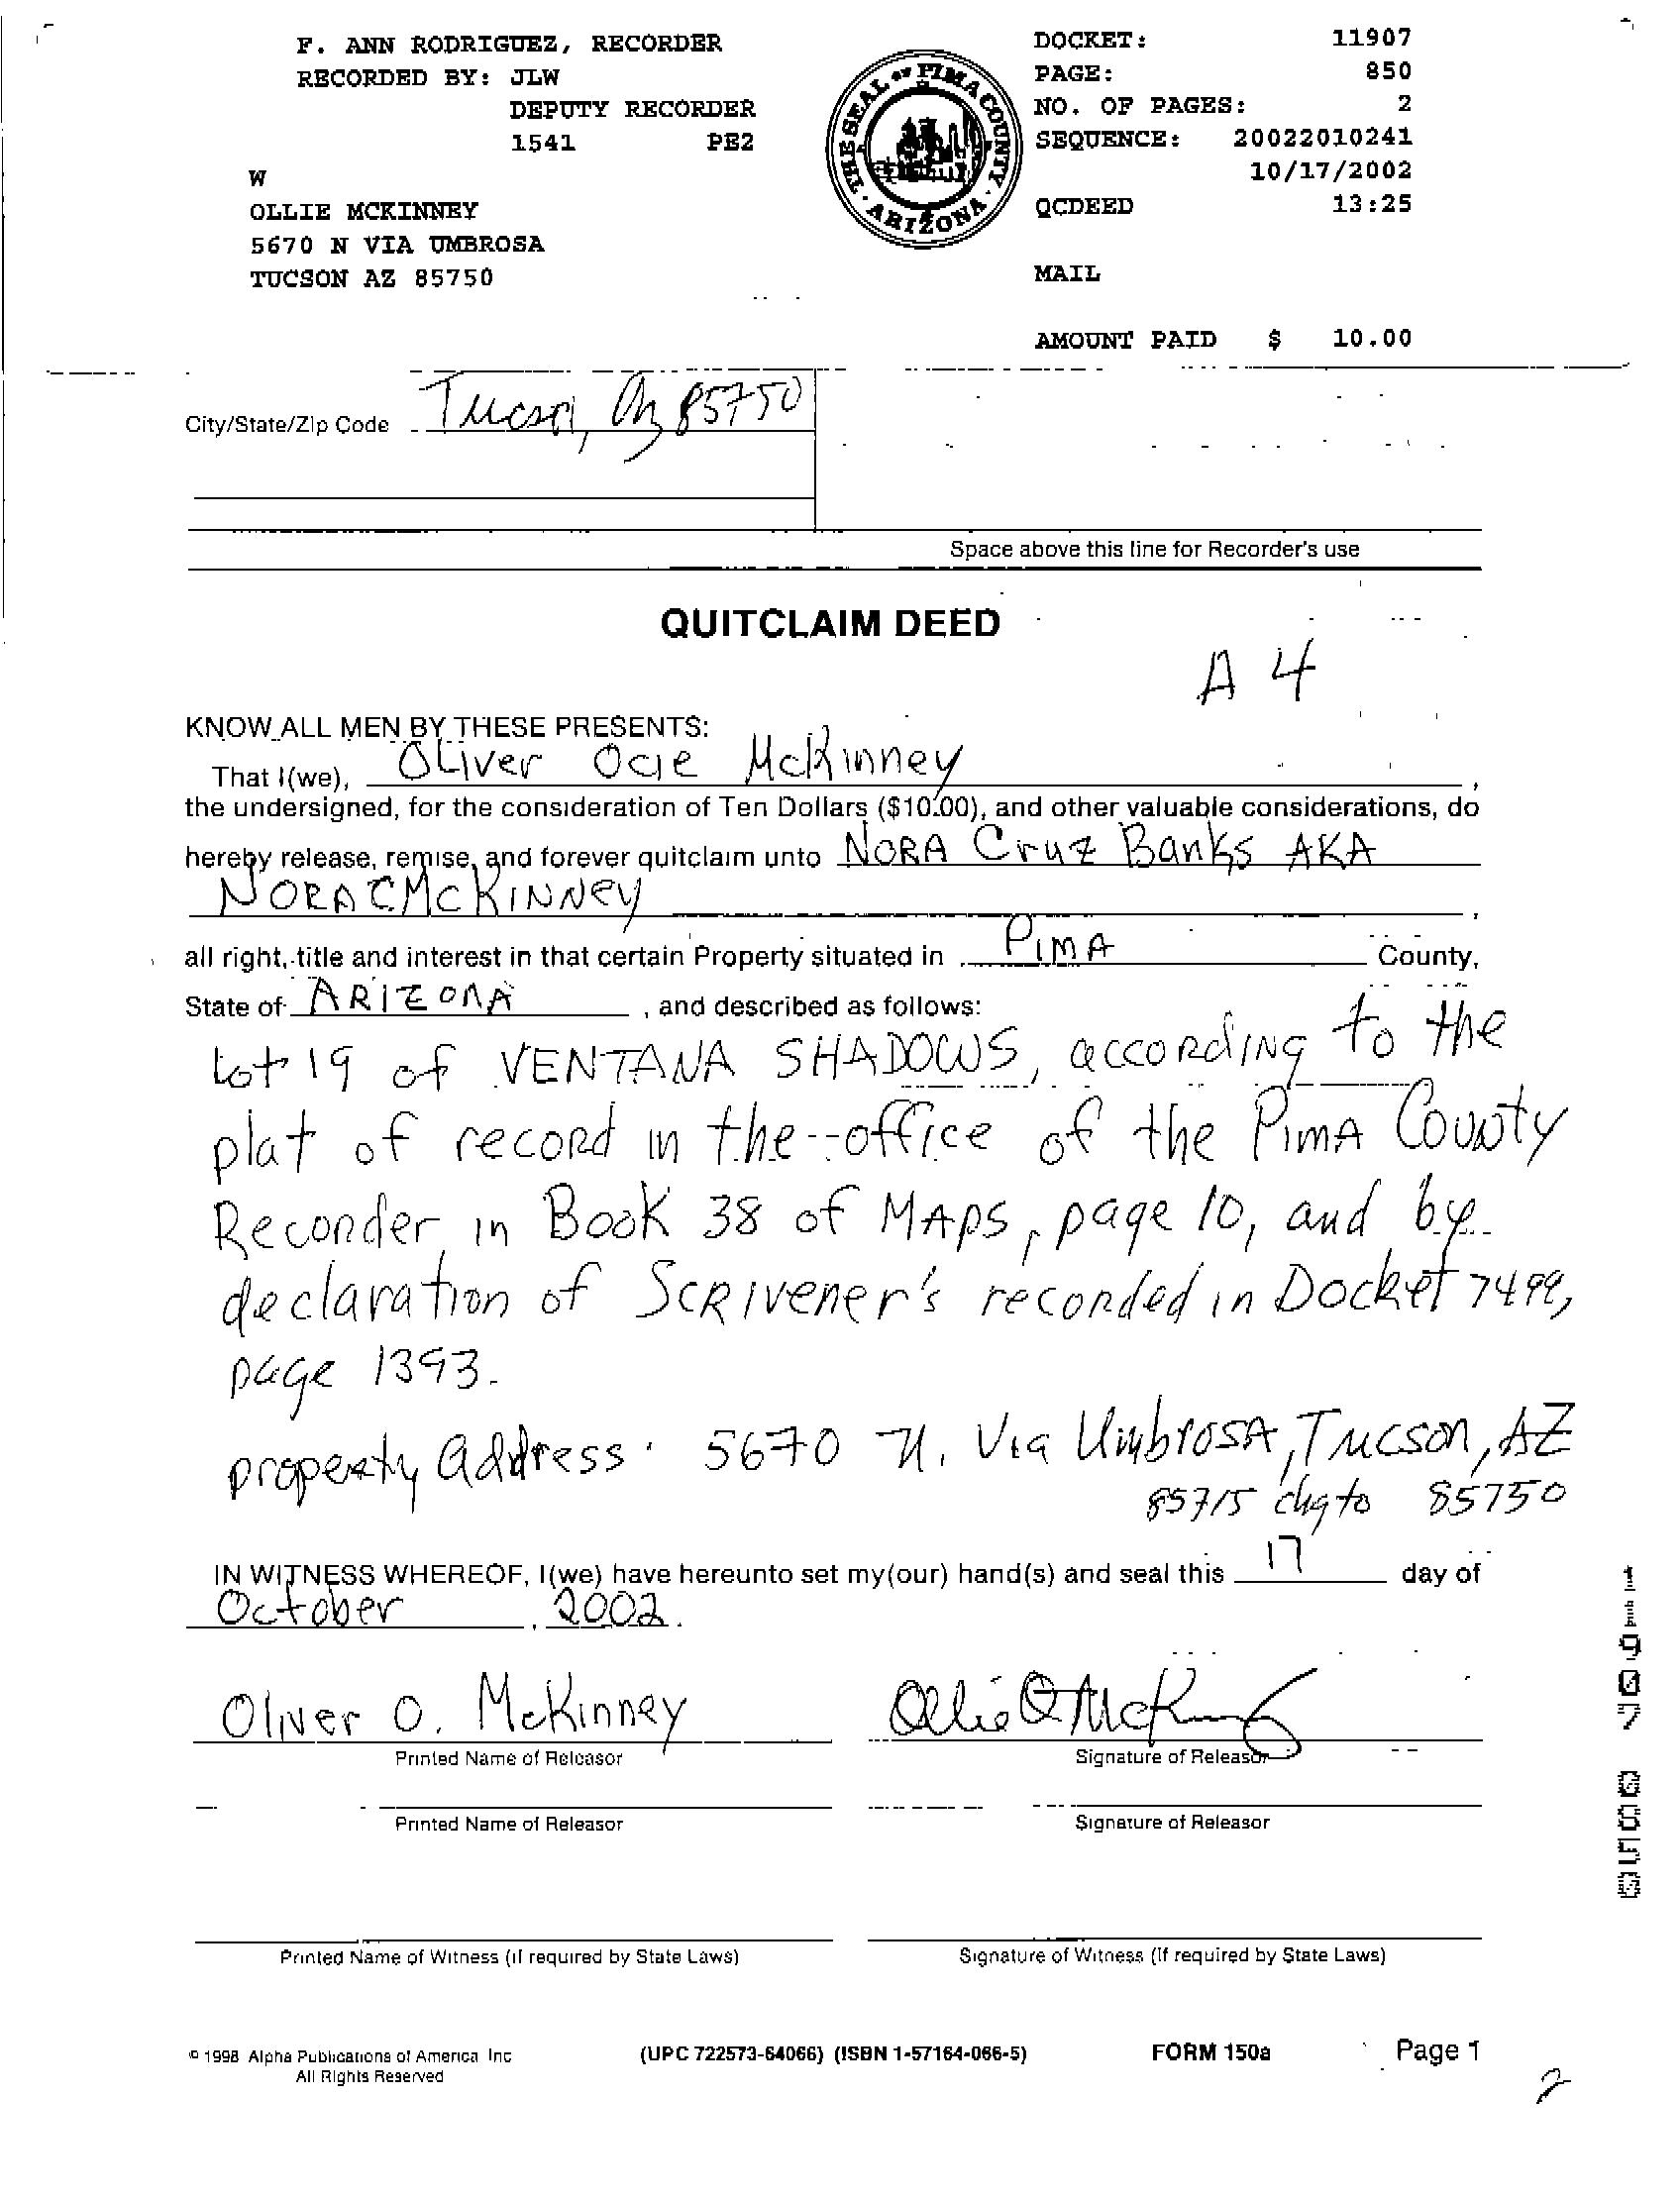 F. ANN RODRIGUEZ, RECORDER
RECORDED BY: JLW
DEPUTY RECORDER
1541 PE2
W
OLLIE MCKINNEY
5670 N VIA UMBROSA
TUCSON AZ 85750
THE SEAL OF PIMA COUNTY · ARIZONA ·
DOCKET: 11907
PAGE: 850
NO. OF PAGES: 2
SEQUENCE: 20022010241
10/17/2002
QCDEED 13:25
MAIL
AMOUNT PAID $ 10.00
City/State/Zip Code Tucson, Az 85750
Space above this line for Recorder's use
QUITCLAIM DEED
A 4
KNOW ALL MEN BY THESE PRESENTS:
That I(we), OLiver Ocie McKinney ,
the undersigned, for the consideration of Ten Dollars ($10.00), and other valuable considerations, do
hereby release, remise, and forever quitclaim unto NORA Cruz Banks AKA
NORA C McKINNey ,
all right, title and interest in that certain Property situated in PIMA County,
State of ARIZONA , and described as follows:
Lot 19 of VENTANA SHADOWS, according to the
plat of record in the office of the PimA County
Recorder, in Book 38 of MAps, page 10, and by
declaration of Scrivener's recorded in Docket 7499,
page 1393.
property address: 5670 N. Via UmbrosA, Tucson, AZ
85715 chg to 85750
IN WITNESS WHEREOF, I(we) have hereunto set my(our) hand(s) and seal this 17 day of
October , 2002.
Oliver O. McKinney Ollie O McKinney
Printed Name of Releasor Signature of Releasor
Printed Name of Releasor Signature of Releasor
Printed Name of Witness (if required by State Laws) Signature of Witness (If required by State Laws)
© 1998 Alpha Publications of America Inc (UPC 722573-64066) (ISBN 1-57164-066-5) FORM 150a Page 1
All Rights Reserved
2
11907 00850